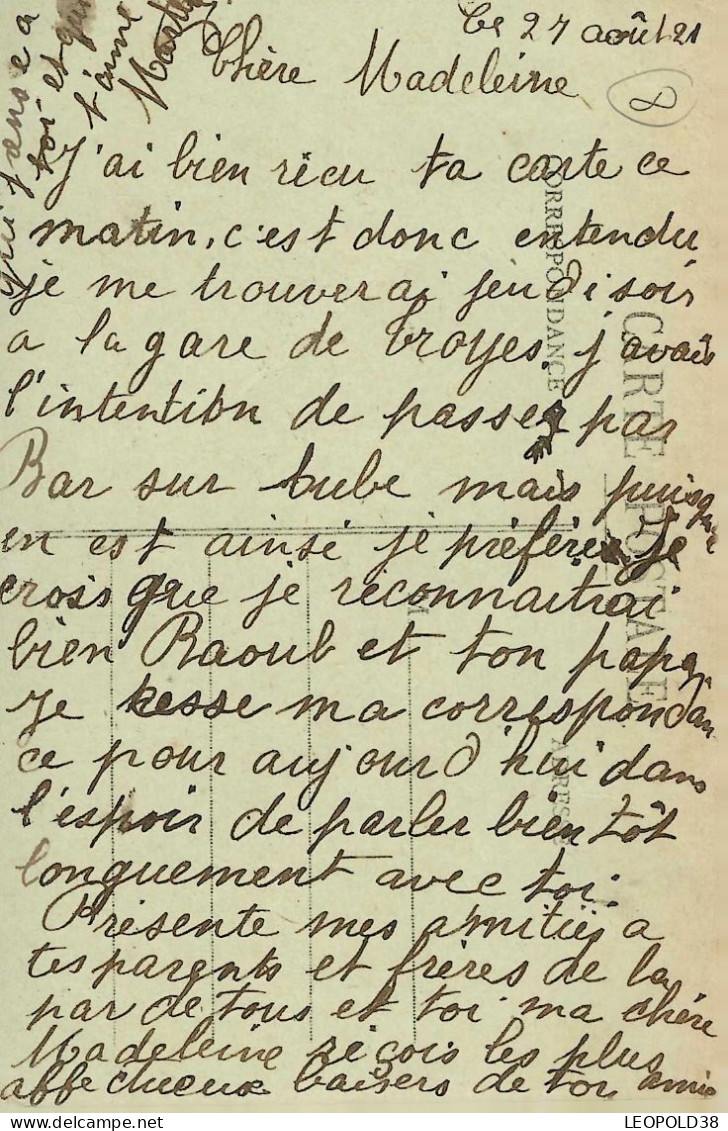 Le 27 août 21
Chère Madeleine
8
J'ai bien récu ta carte ce
matin, c'est donc entendu
je me trouverai jeudi soir
a la gare de Troyes, j'avais
l'intention de passer par
Bar sur Aube mais puisque
en est ainsi je préfère je
crois que je reconnaitrai
bien Raoul et ton papa
Je cesse ma correspondan
ce pour aujourd'hui dans
l'espoir de parler bientôt
longuement avec toi.
Présente mes amitiés a
tes parents et frères de la
par de tous et toi ma chère
Madeleine reçois les plus
affectueux baisers de ton amie
qui pense a
toi et qui
t'aime
CARTE POSTALE
CORRESPONDANCE
ADRESSE
LEOPOLD38